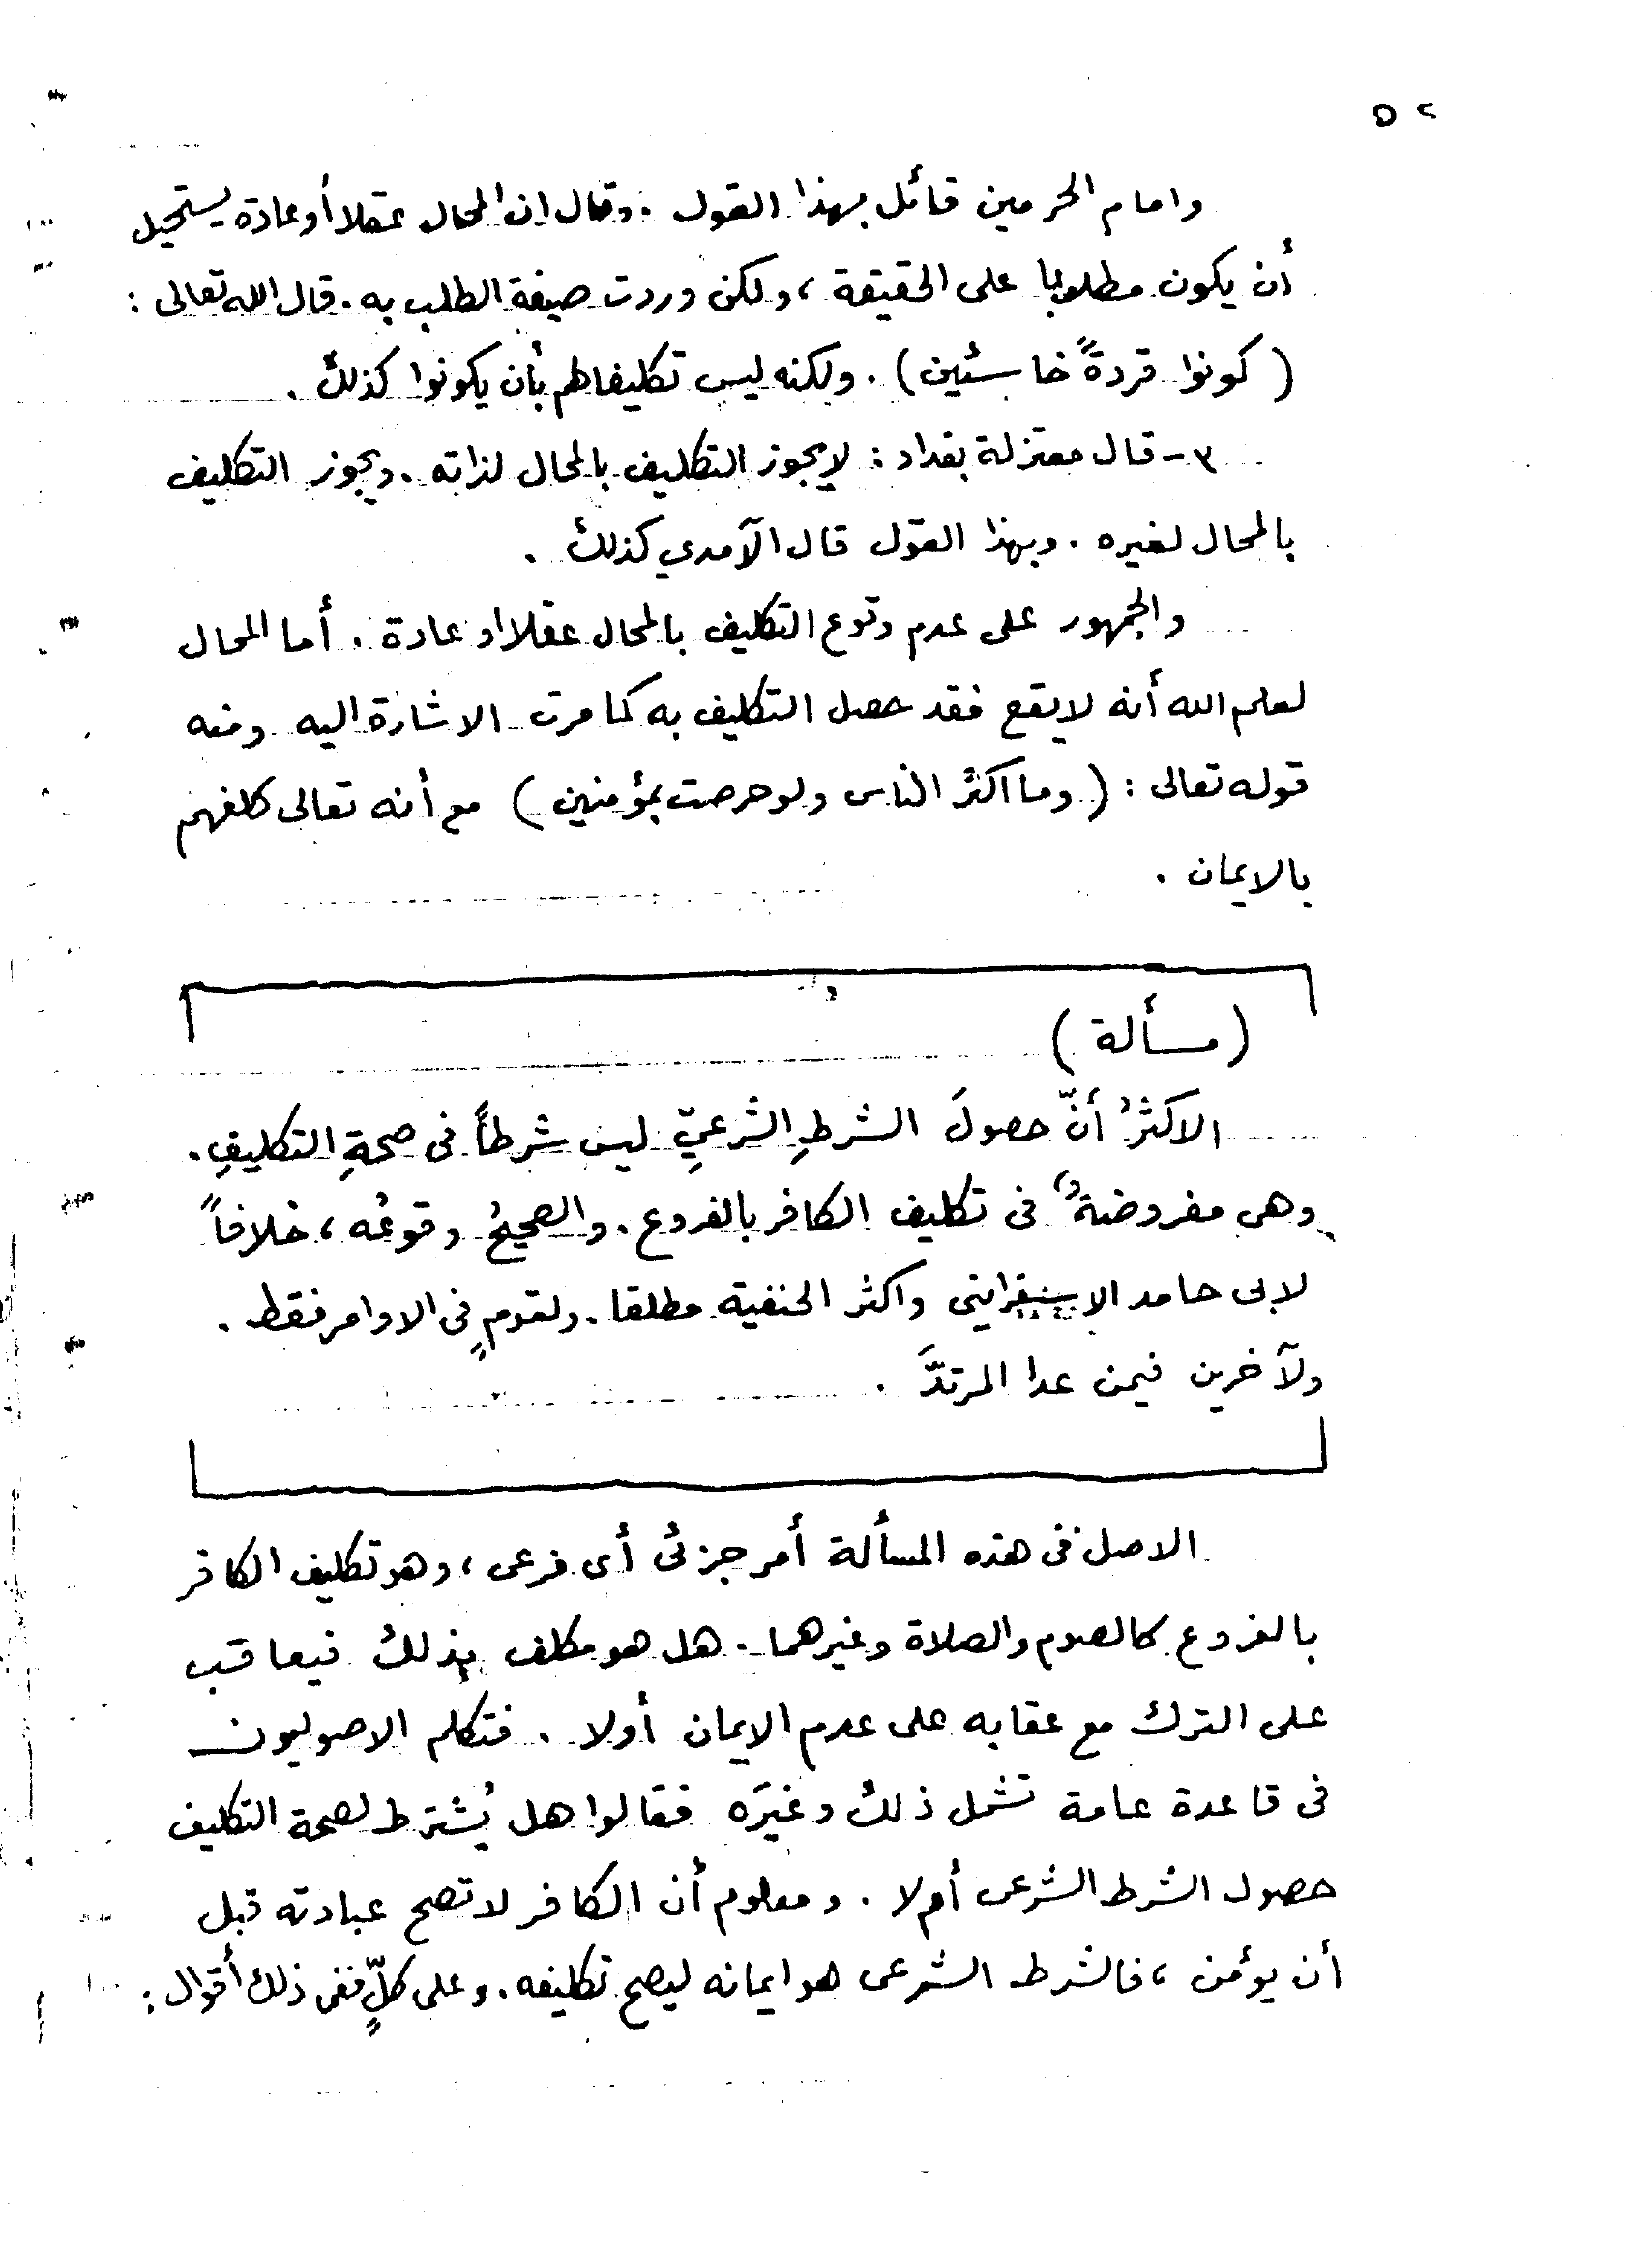 ٥٢
وامام الحرمين قائل بهذا القول . وقال ان المحال عقلا أو عادة يستحيل
أن يكون مطلوبا على الحقيقة ، ولكن وردت صيغة الطلب به . قال الله تعالى :
( كونوا قردةً خاسئين ) . ولكنه ليس تكليفا لهم بأن يكونوا كذلك .
٣ - قال معتزلة بغداد : لا يجوز التكليف بالمحال لذاته . ويجوز التكليف
بالمحال لغيره . وبهذا القول قال الآمدي كذلك .
والجمهور على عدم وقوع التكليف بالمحال عقلا او عادة . أما المحال
لعلم الله أنه لا يقع فقد حصل التكليف به كما مرت الاشارة اليه ومنه
قوله تعالى : ( وما أكثر الناس ولو حرصت بمؤمنين ) مع أنه تعالى كلفهم
بالايمان .
( مسألة )
الاكثرُ أنّ حصولَ الشرطِ الشرعيِّ ليس شرطاً فى صحةِ التكليفِ .
وهى مفروضةٌ فى تكليف الكافر بالفروع . والصحيحُ وقوعُه ، خلافاً
لابى حامد الاسفرايني واكثر الحنفية مطلقا . ولقومٍ فى الاوامر فقط .
ولآخرين فيمن عدا المرتدَّ .
الاصل فى هذه المسألة أمر جزئى أى فرعى ، وهو تكليف الكافر
بالفروع كالصوم والصلاة وغيرهما . هل هو مكلف بذلك فيعاقب
على الترك مع عقابه على عدم الايمان أولا . فتكلم الاصوليون
فى قاعدة عامة تشمل ذلك وغيَره فقالوا هل يُشترط لصحة التكليف
حصول الشرط الشرعى أم لا . ومعلوم أن الكافر لا تصح عبادته قبل
أن يؤمن ، فالشرط الشرعى هو ايمانه ليصح تكليفه . وعلى كلٍّ ففى ذلك أقوال :